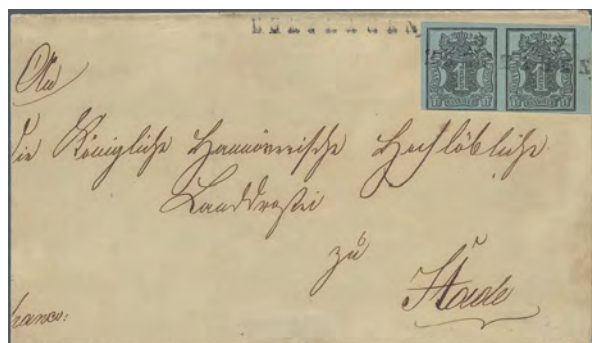 1 1
An
die Königliche Hannöverische Hochlöbliche
Landdrostei
zu
Stade
franco: